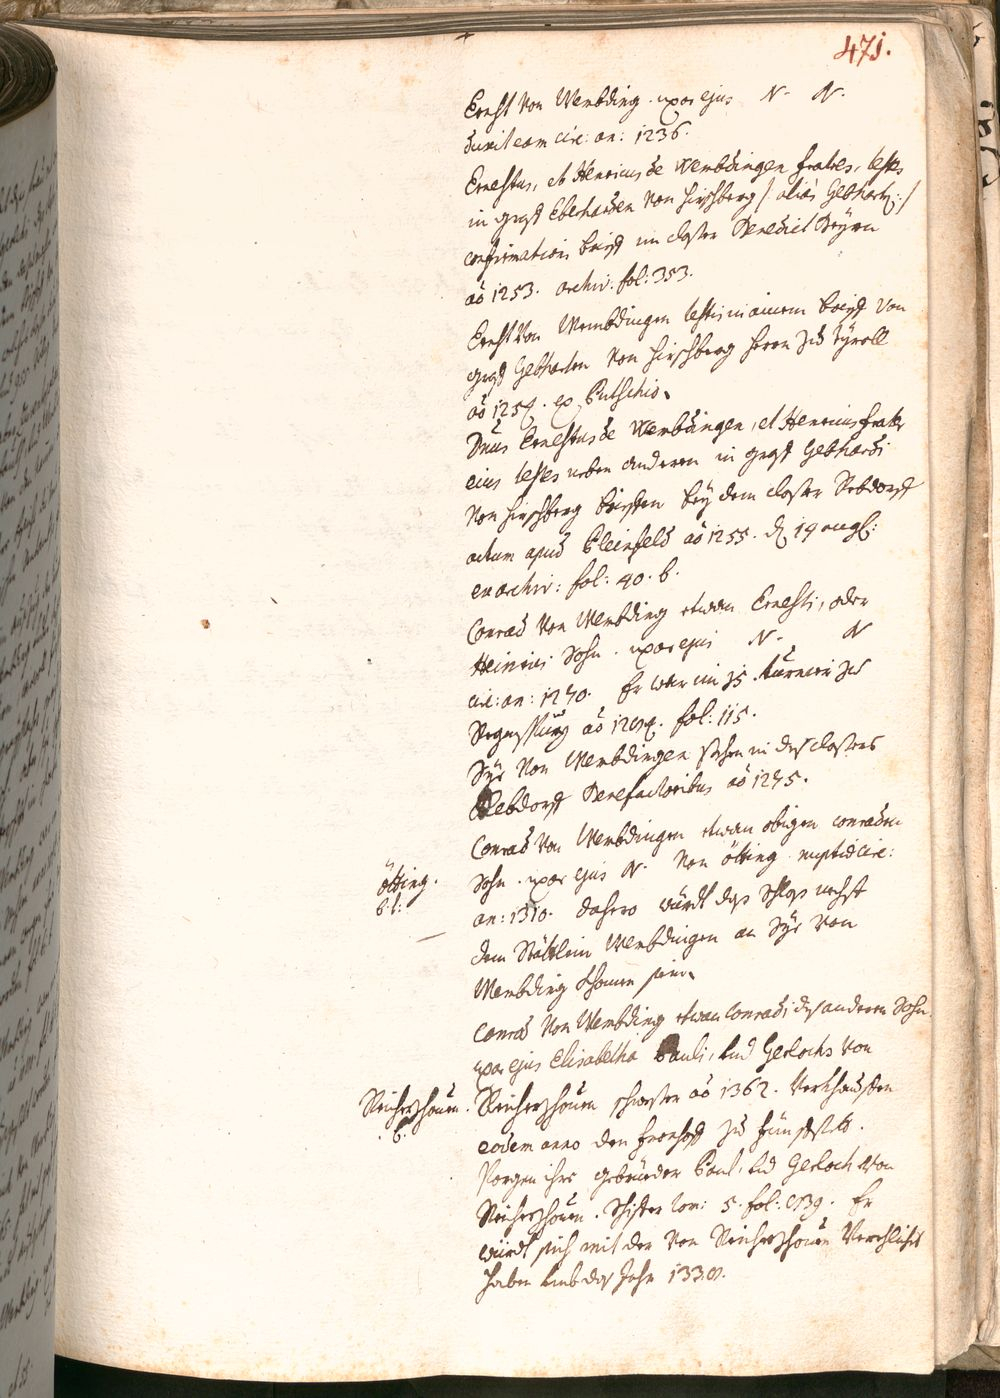 471.
Ernst von Wembding . uxor ejus N. N.
duxit eam circ: an: 1236.
Ernestus, et Henricus de Wembdingen fratres, testes
in graff Eberharden von Hirschberg / aliàs Gebhartz: /
confirmation brieff im closter Benedict Beyren
aõ 1253. archiv. fol: 353.
Ernst von Wembdingen testis in ainem brieff von
graff Gebharten von Hirschberg herrn zu Tyroll
aõ 1254. ex Putschio.
Dnus Ernestus de Wembdingen, et Henricus frater
eius testes neben anderen in graff Gebhardi
von Hirschberg brieffen bey dem closter Rebdorff
actum apud Pleinfeld aõ 1255. d. 19 aug:
ex archiv: fol: 40. b.
Conrad von Wembding etwan Ernesti, oder
Heinrici Sohn . uxor ejus N. N
circ: an: 1270. Er war im 15. turnier zu
Regenspurg aõ 1284. fol: 115.
Dise von Wembdingen stehen in dess closters
Rebdorff Benefactoribus aõ 1275.
Conrad von Wembdingen etwan obigen conraden
Sohn . uxor ejus N. von ötting nupta circ:
ötting.
b. l:
an: 1310. dahero würdt das schloss nechst
dem Stättlein Wembdingen an Dise von
Wembding khomen sein.
Conrad von Wembding etwan Conradi dess anderen Sohn.
uxor ejus Elisabetha Pauli, und Gerlochs von
Reichertzhouen.
b.
Reichertzhouen schwester aõ 1362. Verkhaufften
eodem anno den fronhoff zu Fünfstett.
Porgen ihre gebrüeder Paul, und Gerloch von
Reichertzhouen. Schifter tom: 5. fol: 839. Er
würdt sich mit der von Reichertzhouen Verehlicht
haben umb das Jahr 1338.